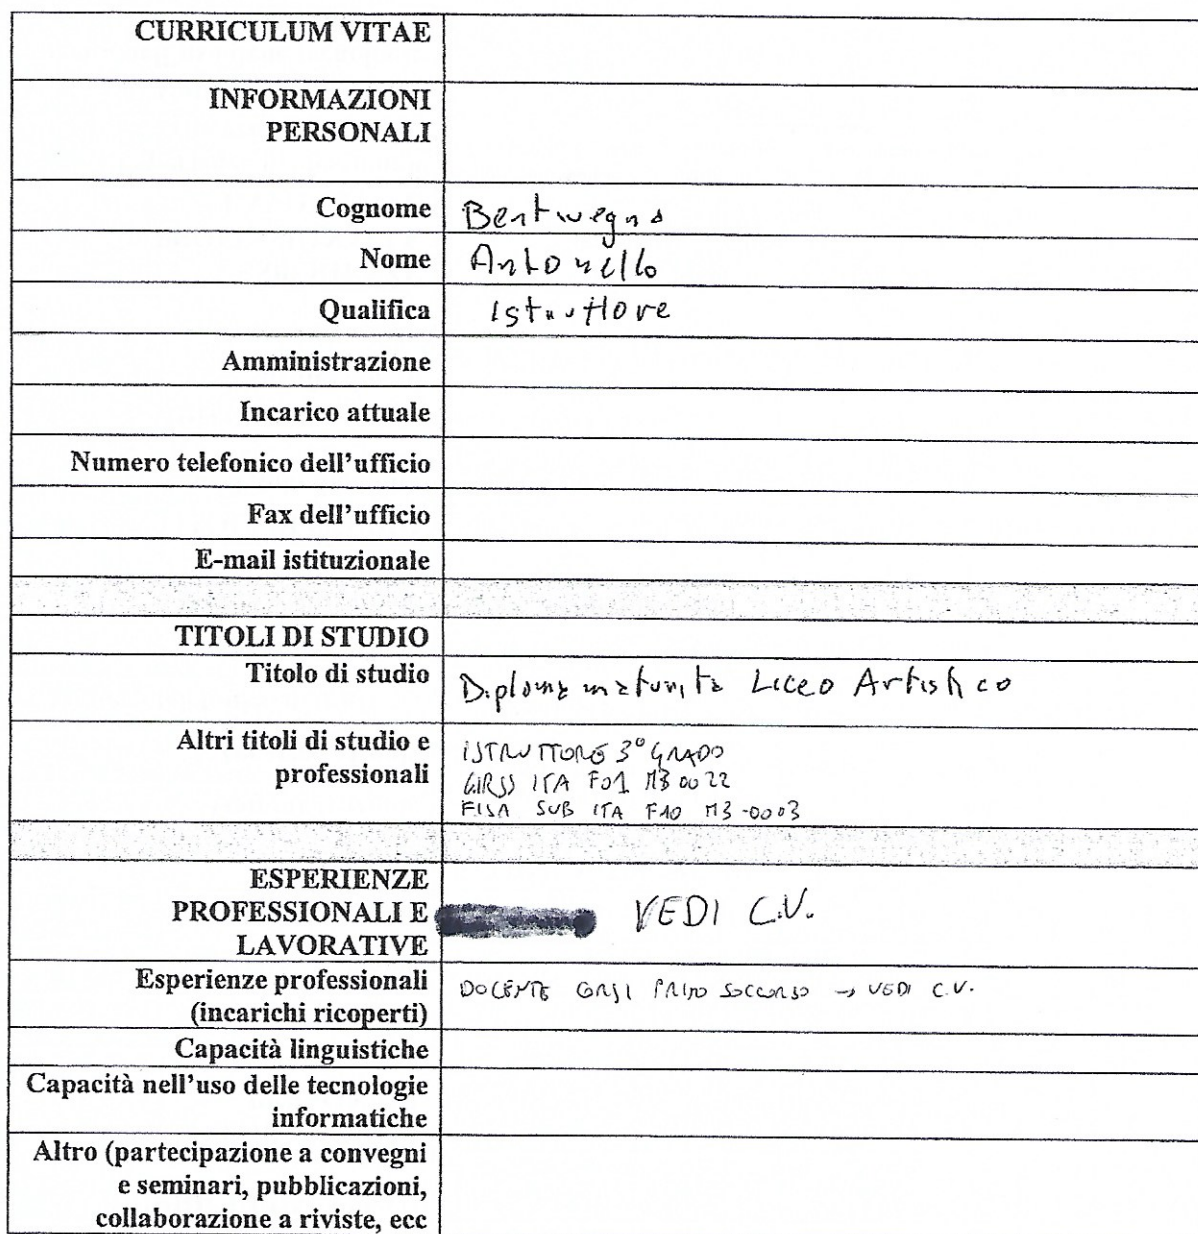 CURRICULUM VITAE
INFORMAZIONI
PERSONALI
Cognome Bentivegna
Nome Antonello
Qualifica Istruttore
Amministrazione
Incarico attuale
Numero telefonico dell'ufficio
Fax dell'ufficio
E-mail istituzionale
TITOLI DI STUDIO
Titolo di studio Diploma maturità Liceo Artistico
Altri titoli di studio e
professionali
ISTRUTTORE 3° GRADO
ITA F01 M3 0022
FISA SUB ITA F10 M3-0003
ESPERIENZE
PROFESSIONALI E
LAVORATIVE
VEDI C.V.
Esperienze professionali
(incarichi ricoperti)
DOCENTE CORSI PRIMO SOCCORSO → VEDI C.V.
Capacità linguistiche
Capacità nell'uso delle tecnologie
informatiche
Altro (partecipazione a convegni
e seminari, pubblicazioni,
collaborazione a riviste, ecc